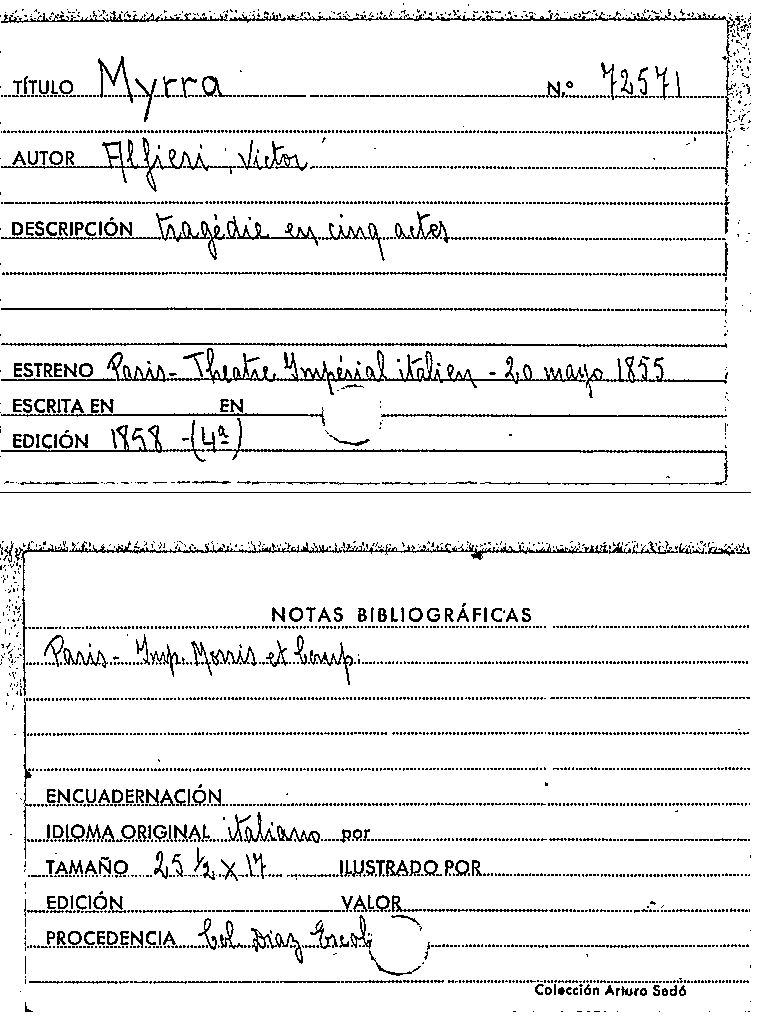 TÍTULO Myrra N.º 72571
AUTOR Alfieri, Victor
DESCRIPCIÓN tragédie en cinq actes
ESTRENO Paris - Theatre Impérial italien - 20 mayo 1855
ESCRITA EN EN
EDICIÓN 1858 - (4ª)
NOTAS BIBLIOGRÁFICAS
Paris - Imp. Morris et Comp.
ENCUADERNACIÓN
IDIOMA ORIGINAL italiano por
TAMAÑO 25 ½ x 17 ILUSTRADO POR
EDICIÓN VALOR
PROCEDENCIA Col. Diaz Escob
Colección Arturo Sedó